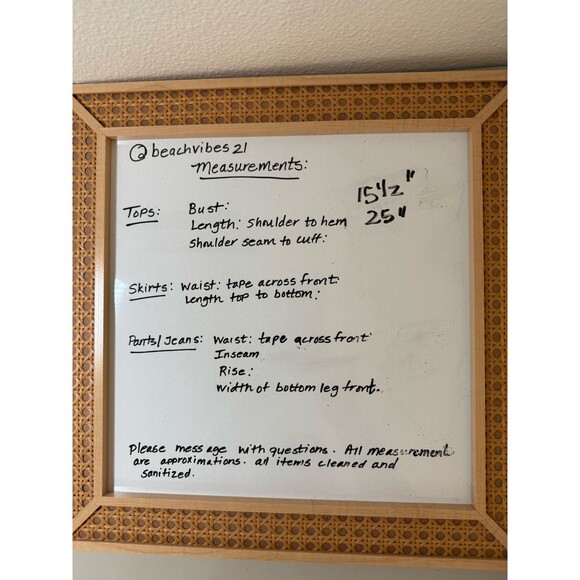 @beachvibes21
Measurements:
Tops: Bust: 15 1/2"
Length: Shoulder to hem 25"
Shoulder seam to cuff:
Skirts: Waist: tape across front:
Length top to bottom:
Pants/Jeans: Waist: tape across front:
Inseam
Rise:
Width of bottom leg front.
Please message with questions. All measurement
are approximations. all items cleaned and
sanitized.